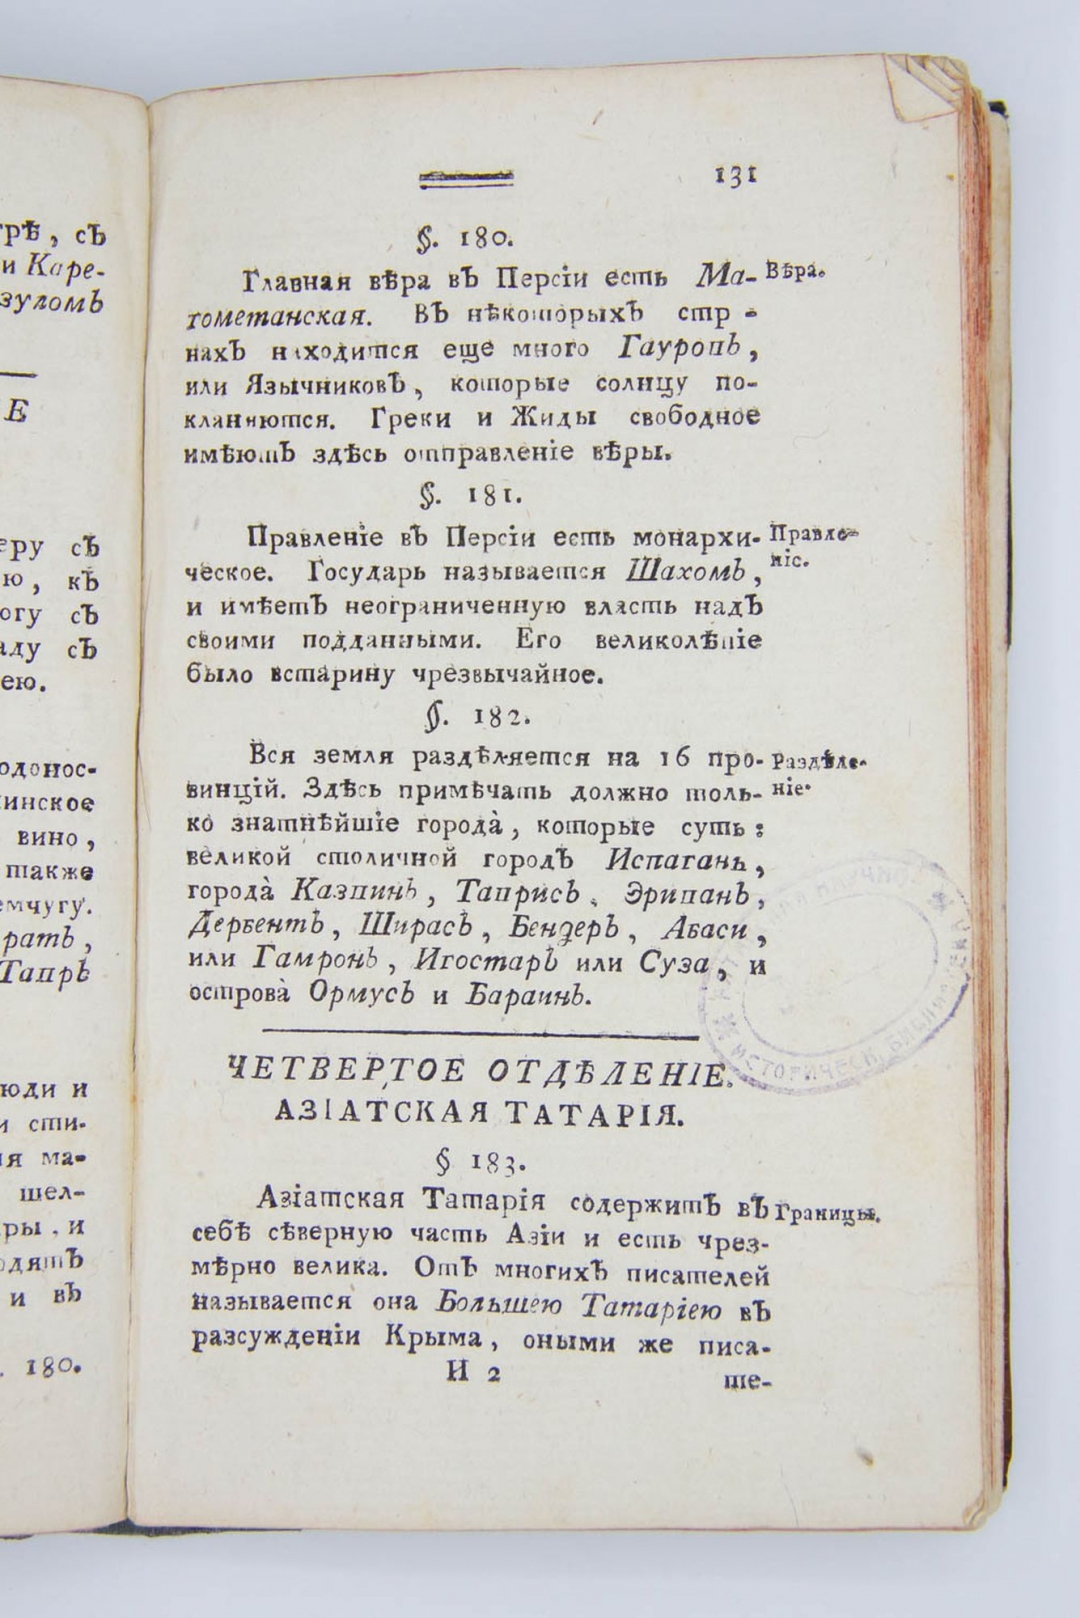 трѣ, съ
и Каре-
зуломъ
Е
еру съ
ю, къ
огу съ
аду съ
ею.
одонос-
инское
вино,
также
емчугу.
ратъ,
Тавръ
юди и
и сти-
ия ма-
шел-
ры, и
одятъ
и въ
180.
131
§. 180.
Главная вѣра въ Персіи есть Ма- Вѣра.
гометанская. Въ нѣкоторыхъ стр -
нахъ находится еще много Гауровъ,
или Язычниковъ, которые солнцу по-
кланяются. Греки и Жиды свободное
имѣютъ здѣсь отправленіе вѣры.
§. 181.
Правленіе въ Персіи есть монархи- Правле-
ческое. Государь называется Шахомъ, ніе.
и имѣетъ неограниченную власть надъ
своими подданными. Его великолѣпіе
было встарину чрезвычайное.
§. 182.
Вся земля раздѣляется на 16 про- Раздѣле-
винцій. Здѣсь примѣчать должно толь- ніе.
ко знатнѣйшіе города̀, которые суть:
великой столичной городъ Испагань,
города̀ Казвинъ, Таврисъ, Эриванъ,
Дербентъ, Ширасъ, Бендеръ, Абаси,
или Гамронъ, Игостаръ или Суза, и
острова̀ Ормусъ и Бараинъ.
ЧЕТВЕРТОЕ ОТДѢЛЕНІЕ.
АЗІАТСКАЯ ТАТАРІЯ.
§ 183.
Азіатская Татарія содержитъ въ Границы.
себѣ сѣверную часть Азіи и есть чрез-
мѣрно велика. Отъ многихъ писателей
называется она Большею Татаріею въ
разсужденіи Крыма, оными же писа-
И 2 те-
НАУЧНО
ИСТОРИЧЕСК БИБЛИОТЕКА